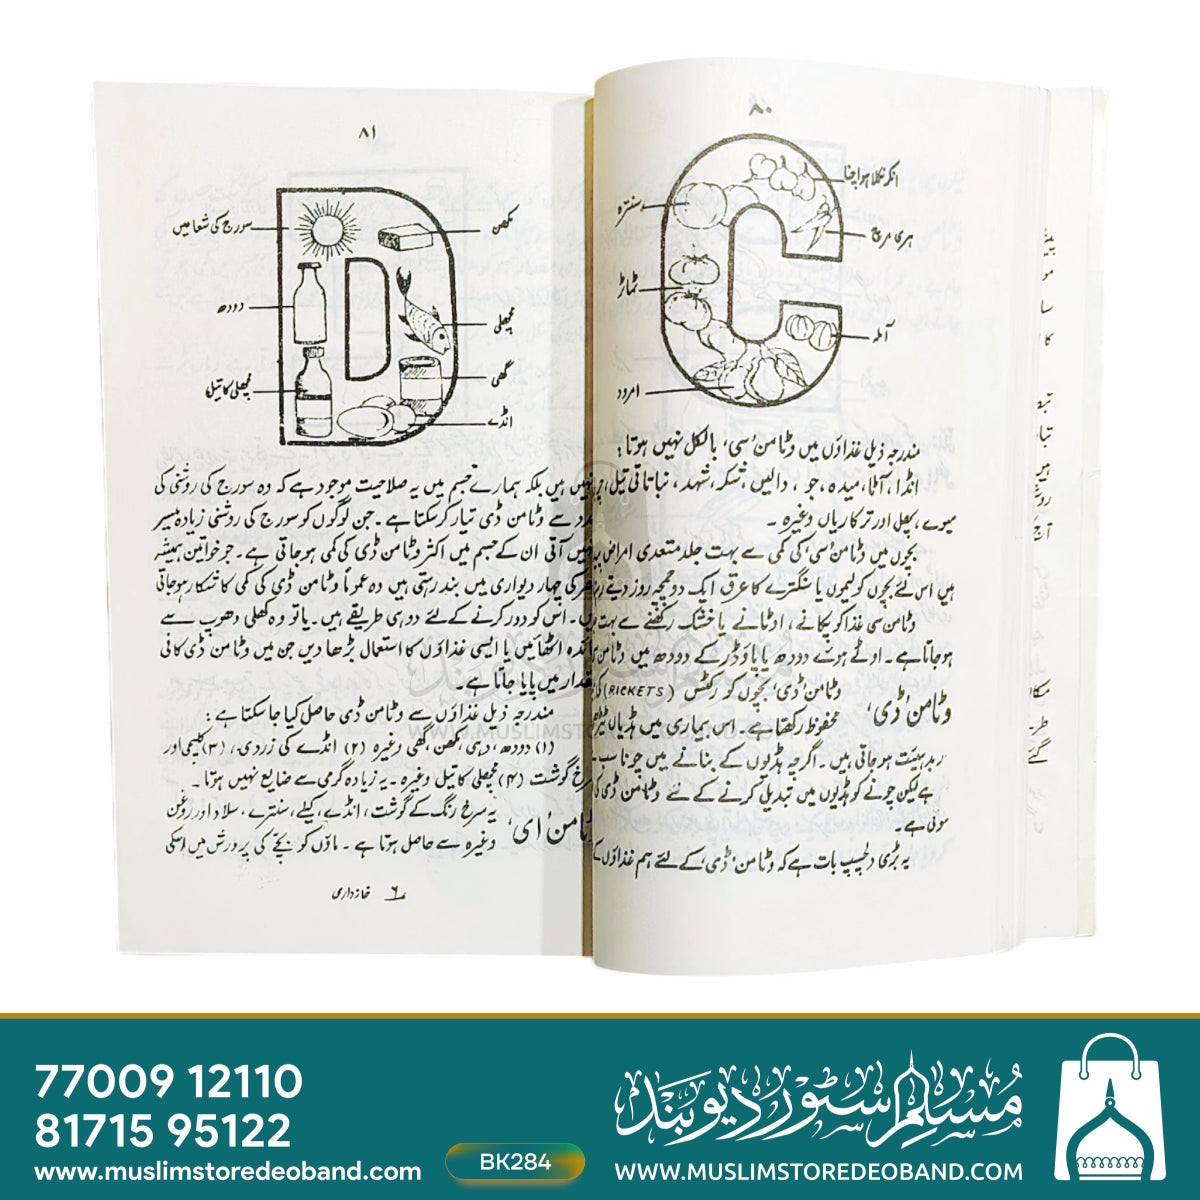 ۸۰
انکر نکلا ہوا چنا
سنترہ
ہری مرچ
ٹماٹر
آملہ
امرود
مندرجہ ذیل غذاؤں میں وٹامن 'سی' بالکل نہیں ہوتا:
انڈا، آٹا، میدہ، جو، دالیں، شکر، شہد، نباتاتی تیل،
میوے، پھل اور ترکاریاں وغیرہ۔
بچوں میں وٹامن 'سی' کی کمی سے بہت جلد متعدی امراض
ہیں اس لئے بچوں کو لیموں یا سنگترے کا عرق ایک دو چمچہ روز دیتے
وٹامن سی غذا کو پکانے، اوٹانے یا خشک رکھنے سے بہت
ہو جاتا ہے۔ اوٹے ہوئے دودھ یا پاؤڈر کے دودھ میں وٹامن
وٹامن 'ڈی' وٹامن 'ڈی' بچوں کو رکٹس (RICKETS)
محفوظ رکھتا ہے۔ اس بیماری میں ہڈیاں
بدہیئت ہو جاتی ہیں۔ اگرچہ ہڈیوں کے بنانے میں چونا
ہے لیکن چونے کو ہڈیوں میں تبدیل کرنے کے لئے وٹامن ڈی کی
ہوتی ہے۔
یہ بڑی دلچسپ بات ہے کہ وٹامن 'ڈی' کے لئے ہم غذاؤں کے
۸۱
سورج کی شعاعیں
مکھن
دودھ
مچھلی
گھی
مچھلی کا تیل
انڈے
نہیں ہیں بلکہ ہمارے جسم میں یہ صلاحیت موجود ہے کہ وہ سورج کی روشنی کی
مدد سے وٹامن ڈی تیار کرسکتا ہے۔ جن لوگوں کو سورج کی روشنی زیادہ میسر
نہیں آتی ان کے جسم میں اکثر وٹامن ڈی کی کمی ہو جاتی ہے۔ جو خواتین ہمیشہ
گھر کی چہار دیواری میں بند رہتی ہیں وہ عموماً وٹامن ڈی کی کمی کا شکار ہو جاتی
ہیں۔ اس کو دور کرنے کے لئے دو ہی طریقے ہیں۔ یا تو وہ کھلی دھوپ سے
فائدہ اٹھائیں یا ایسی غذاؤں کا استعمال بڑھا دیں جن میں وٹامن ڈی کافی
مقدار میں پایا جاتا ہے۔
مندرجہ ذیل غذاؤں سے وٹامن ڈی حاصل کیا جا سکتا ہے:
(۱) دودھ، دہی، مکھن، گھی وغیرہ (۲) انڈے کی زردی، (۳) کلیجی اور
سرخ گوشت (۴) مچھلی کا تیل وغیرہ۔ یہ زیادہ گرمی سے ضایع نہیں ہوتا۔
وٹامن 'ای' یہ سرخ رنگ کے گوشت، انڈے، کیلے، سنترے، سلاد اور روغن
وغیرہ سے حاصل ہوتا ہے۔ ماؤں کو بچے کی پرورش میں اسکی
۶ خانہ داری
77009 12110
81715 95122
www.muslimstoredeoband.com
BK284
مسلم سٹور دیوبند
WWW.MUSLIMSTOREDEOBAND.COM